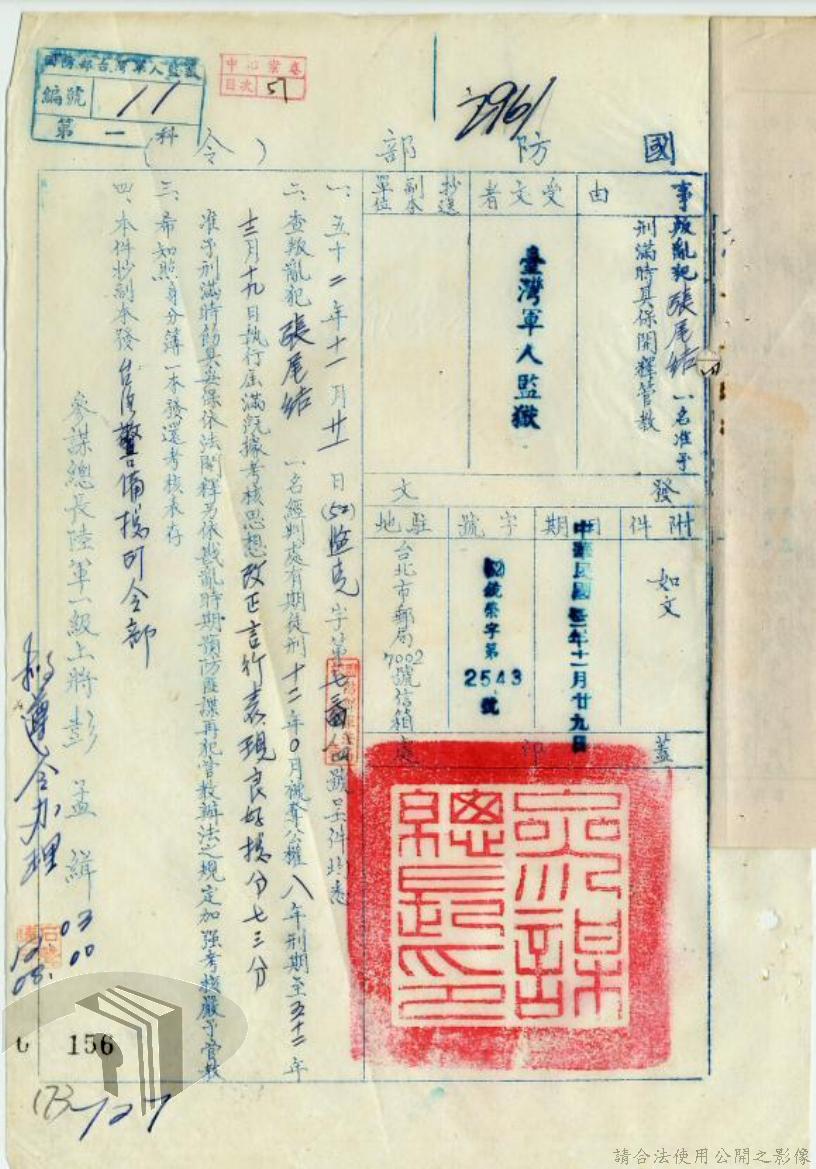 國防部台灣軍人監獄
編號 11
第一科
中心案卷
目次 51
2961
國防部(令)
事由
叛亂犯張尾結一名准予
刑滿時具保開釋管教
受文者
臺灣軍人監獄
抄送副本單位
發文
附件
如文
日期
中華民國五十二年十一月廿九日
字號
統崇字第
2543
號
駐地
台北市郵局
7002
號信箱
蓋印處
參謀總長印
一、五十二年十一月廿一日(52)監克字第七
號呈件均悉
二、查叛亂犯張尾結一名經判處有期徒刑十二年0月褫奪公權八年刑期至五十二年
十二月十九日執行屆滿既據考核思想改正言行表現良好積分七三分
准予刑滿時飭具妥保依法開釋另依戡亂時期預防匪諜再犯管教辦法之規定加強考核嚴予管教
三、希知照身分簿一本發還考核表存
四、本件抄副本發台灣警備總司令部
參謀總長陸軍一級上將彭孟緝
擬遵令办理
12/03
08:00
156
173
127
請合法使用公開之影像